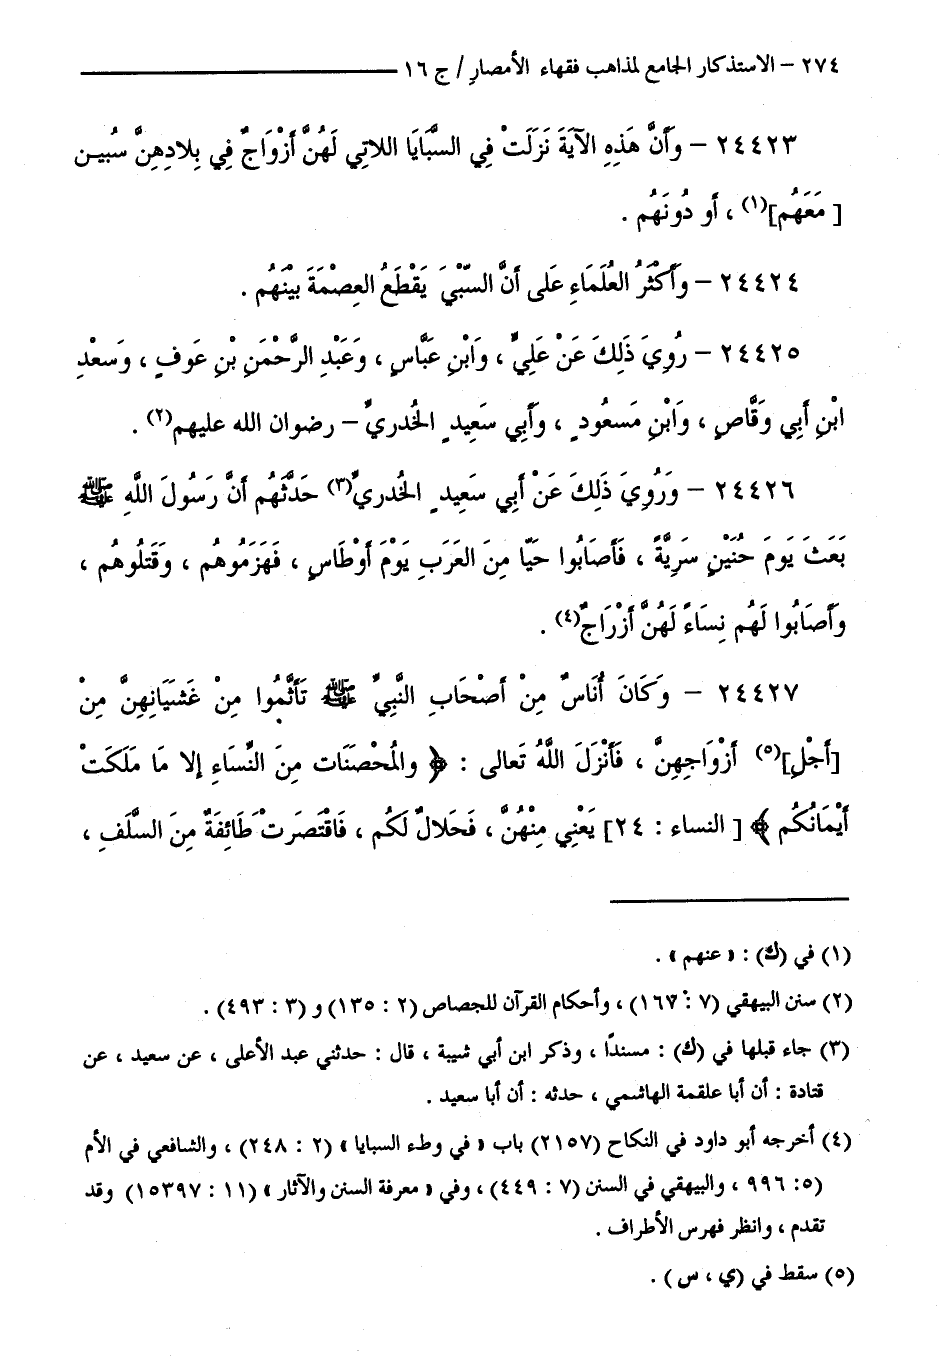 ٢٧٤ – الاستذكار الجامع لمذاهب فقهاء الأمصارِ / ج ١٦
٢٤٤٢٣ – وَأَنَّ هَذِهِ الآيَةَ نَزَلَتْ فِي السَّبَايَا اللاتِي لَهُنَّ أَزْوَاجٌ فِي بِلادِهِنَّ سُبِينَ
[ مَعَهُم](١) ، أَو دُونَهُم .
٢٤٤٢٤ – وَأَكْثَرُ العُلَمَاءِ عَلى أَنَّ السّبْيَ يَقْطَعُ العِصْمَةَ بَيْنَهُم .
٢٤٤٢٥ – رُوِيَ ذَلِكَ عَنْ عَلِيٍّ ، وَابْنِ عَبَّاسٍ ، وَعَبْدِ الرَّحْمَنِ بْنِ عَوفٍ ، وَسَعْدِ
ابْنِ أَبِي وَقَّاصٍ ، وَابْنِ مَسعُودٍ ، وَأَبِي سَعِيدٍ الخُدرِيِّ – رضوان الله عليهم(٢) .
٢٤٤٢٦ – وَرُوِيَ ذَلِكَ عَنْ أَبِي سَعِيدٍ الخُدرِيِّ(٣) حَدَّثَهُم أَنَّ رَسُولَ اللَّهِ ﷺ
بَعَثَ يَومَ حُنَيْنٍ سَرِيَّةً ، فَأَصَابُوا حَيّا مِنَ العَرَبِ يَوْمَ أَوْطَاسٍ ، فَهَزَمُوهُم ، وَقَتَلُوهُم ،
وَأَصَابُوا لَهُم نِسَاءً لَهُنَّ أَزْرَاجٌ(٤) .
٢٤٤٢٧ – وَكَانَ أُنَاسٌ مِنْ أَصْحَابِ النَّبِيِّ ﷺ تَأَثَّمُوا مِنْ غَشَيَانِهِنَّ مِنْ
[أَجْلِ](٥) أَزْوَاجِهِنَّ ، فَأَنْزَلَ اللَّهُ تَعالى : ﴿ والمُحْصَنَات مِنَ النِّسَاءِ إلا مَا مَلَكَتْ
أَيْمَانُكُم ﴾ [ النساء : ٢٤] يَعْنِي مِنْهُنَّ ، فَحَلالٌ لَكُم ، فَاقْتَصَرَتْ طَائِفَةٌ مِنَ السَّلَفِ ،
(١) في (ك) : « عنهم » .
(٢) سنن البيهقي (٧ : ١٦٧) ، وأحكام القرآن للجصاص (٢ : ١٣٥) و (٣ : ٤٩٣) .
(٣) جاء قبلها في (ك) : مسندًا ، وذكر ابن أبي شيبة ، قال : حدثني عبد الأعلى ، عن سعيد ، عن
قتادة : أن أبا علقمة الهاشمي ، حدثه : أن أبا سعيد .
(٤) أخرجه أبو داود في النكاح (٢١٥٧) باب « في وطء السبايا » (٢ : ٢٤٨) ، والشافعي في الأم
(٥: ٩٩٦ ، والبيهقي في السنن (٧ : ٤٤٩) ، وفي « معرفة السنن والآثار » (١١ : ١٥٣٩٧) وقد
تقدم ، وانظر فهرس الأطراف .
(٥) سقط في (ي ، س ) .